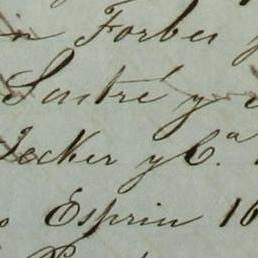 Forbes
Sastré y
Jecker y C.ª
Espriu 16